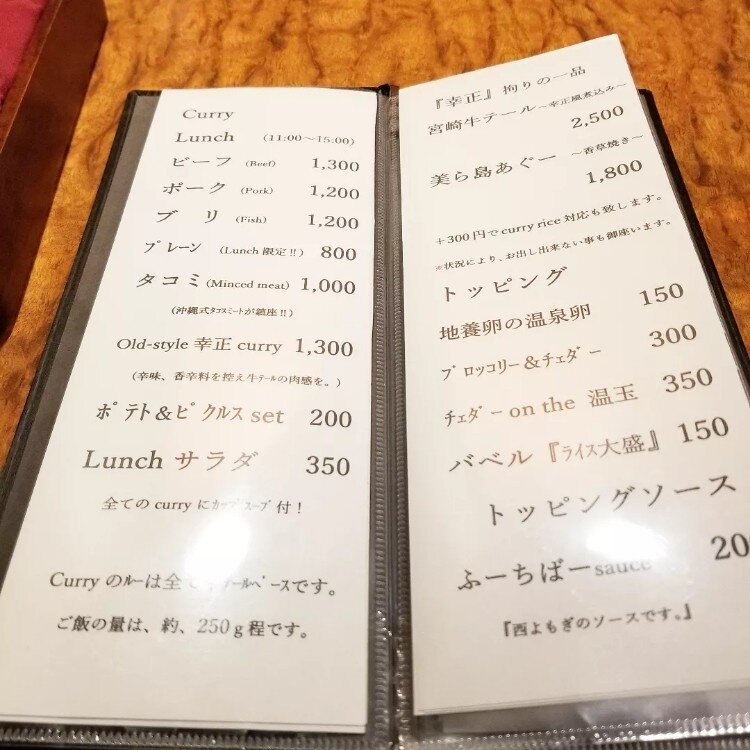 Curry
Lunch (11:00～15:00)
ビーフ (Beef) 1,300
ポーク (Pork) 1,200
ブリ (Fish) 1,200
プレーン (Lunch 限定!!) 800
タコミ (Minced meat) 1,000
(沖縄式タコスミートが鎮座!!)
Old-style 幸正 curry 1,300
(辛味、香辛料を控え牛テールの肉感を。)
ポテト&ピクルス set 200
Lunch サラダ 350
全ての curry にカップスープ付！
Curry のルーは全て テールベースです。
ご飯の量は、約、250ｇ程です。
『幸正』拘りの一品
宮崎牛テール～幸正風煮込み～
2,500
美ら島あぐー ～香草焼き～
1,800
＋300円で curry rice 対応も致します。
※状況により、お出し出来ない事も御座います。
トッピング
地養卵の温泉卵 150
ブロッコリー&チェダー 300
チェダー on the 温玉 350
バベル『ライス大盛』 150
トッピングソース
ふーちばー sauce
『西よもぎのソースです。』